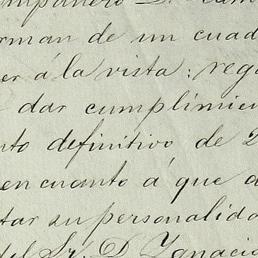 ompañero D. Ram
rman de un cuad
er á la vista: rega
dar cumplimie
nto definitivo de 2
en cuanto á que d
tar su personalida
del Sr. D. Ygnacio